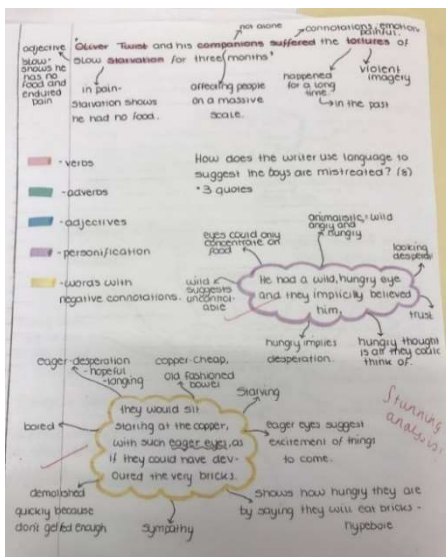 not alone
connotations, emotion
painful.
adjective
'Oliver Twist and his companions suffered the tortures of
slow starvation for three months'
slow-
shows he
has no
food and
endured
pain
in pain-
starvation shows
he had no food.
affecting people
on a massive
scale.
happened
for a long
time.
in the past
violent
imagery
- verbs
- adverbs
- adjectives
- personification
- words with
negative connotations.
How does the writer use language to
suggest the boys are mistreated? (8)
* 3 quotes
eyes could only
concentrate on
food
animalistic, wild
angry and
hungry
looking
desperate
wild
suggests
uncontrol-
able
He had a wild, hungry eye
and they implicitly believed
him.
trust
hungry implies
desperation.
hungry thought
is all they could
think of.
Stunning
analysis!
eager-desperation
- hopeful
-longing
copper-cheap,
old fashioned
bowel
starving
bored
they would sit
staring at the copper,
with such eager eyes, as
if they could have dev-
oured the very bricks.
eager eyes suggest
excitement of things
to come.
demolished
quickly because
don't get fed enough
sympathy
shows how hungry they are
by saying they will eat bricks -
hypebole